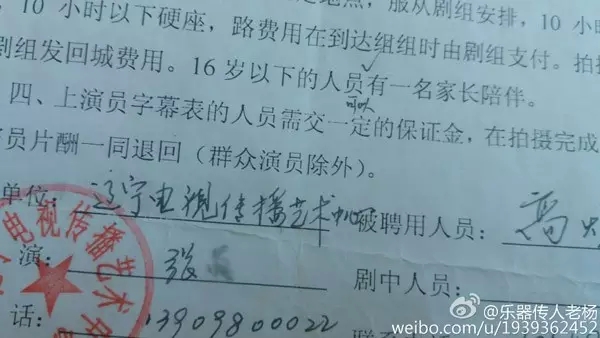 ，10 小时以下硬座，路费用在到达组组时由剧组支付。拍
剧组发回城费用。16 岁以下的人员有一名家长陪伴。
可以
四、上演员字幕表的人员需交一定的保证金，在拍摄完成
员片酬一同退回（群众演员除外）。
单位：辽宁电视传播艺术中心 被聘用人员：高
演：张
剧中人员：
话：13909800022
电视传播艺术中
@乐器传人老杨
weibo.com/u/1939362452